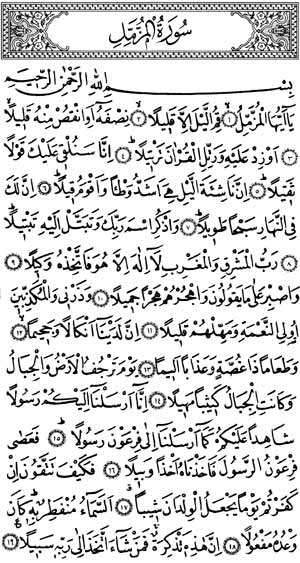 سُورَةُ الْمُزَّمِّلِ
بِسْمِ اللهِ الرَّحْمٰنِ الرَّحِيمِ
يٰٓاَيُّهَا الْمُزَّمِّلُ ﴿١﴾ قُمِ الَّيْلَ اِلَّا قَلِيلًا ﴿٢﴾ نِصْفَهُ اَوِ انْقُصْ مِنْهُ قَلِيلًا
﴿٣﴾ اَوْ زِدْ عَلَيْهِ وَرَتِّلِ الْقُرْاٰنَ تَرْتِيلًا ﴿٤﴾ اِنَّا سَنُلْقِي عَلَيْكَ قَوْلًا
ثَقِيلًا ﴿٥﴾ اِنَّ نَاشِئَةَ الَّيْلِ هِيَ اَشَدُّ وَطْـًٔا وَاَقْوَمُ قِيلًا ﴿٦﴾ اِنَّ لَكَ
فِي النَّهَارِ سَبْحًا طَوِيلًا ﴿٧﴾ وَاذْكُرِ اسْمَ رَبِّكَ وَتَبَتَّلْ اِلَيْهِ تَبْتِيلًا
﴿٨﴾ رَبُّ الْمَشْرِقِ وَالْمَغْرِبِ لَآ اِلٰهَ اِلَّا هُوَ فَاتَّخِذْهُ وَكِيلًا ﴿٩﴾
وَاصْبِرْ عَلٰى مَا يَقُولُونَ وَاهْجُرْهُمْ هَجْرًا جَمِيلًا ﴿١٠﴾ وَذَرْنِي وَالْمُكَذِّبِينَ
اُولِي النَّعْمَةِ وَمَهِّلْهُمْ قَلِيلًا ﴿١١﴾ اِنَّ لَدَيْنَآ اَنْكَالًا وَجَحِيمًا ﴿١٢﴾
وَطَعَامًا ذَا غُصَّةٍ وَعَذَابًا اَلِيمًا ﴿١٣﴾ يَوْمَ تَرْجُفُ الْاَرْضُ وَالْجِبَالُ
وَكَانَتِ الْجِبَالُ كَثِيبًا مَهِيلًا ﴿١٤﴾ اِنَّآ اَرْسَلْنَآ اِلَيْكُمْ رَسُولًا
شَاهِدًا عَلَيْكُمْ كَمَآ اَرْسَلْنَآ اِلٰى فِرْعَوْنَ رَسُولًا ﴿١٥﴾ فَعَصٰى
فِرْعَوْنُ الرَّسُولَ فَاَخَذْنَاهُ اَخْذًا وَبِيلًا ﴿١٦﴾ فَكَيْفَ تَتَّقُونَ اِنْ
كَفَرْتُمْ يَوْمًا يَجْعَلُ الْوِلْدَانَ شِيبًا ﴿١٧﴾ اَلسَّمَآءُ مُنْفَطِرٌ بِهِ كَانَ
وَعْدُهُ مَفْعُولًا ﴿١٨﴾ اِنَّ هٰذِهِ تَذْكِرَةٌ فَمَنْ شَآءَ اتَّخَذَ اِلٰى رَبِّهِ سَبِيلًا ﴿١٩﴾